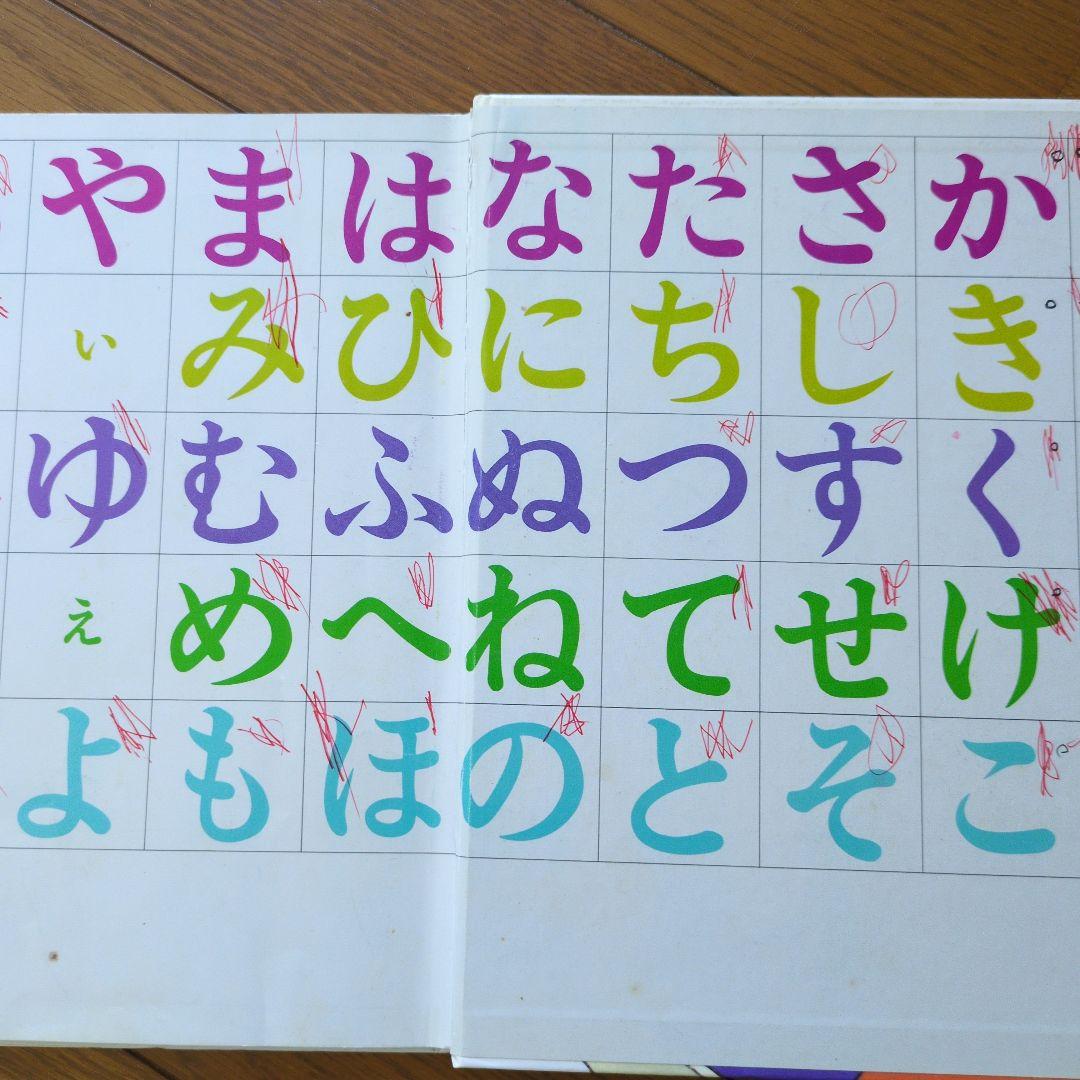 かきくけこ
さしすせそ
たちつてと
なにぬねの
はひふへほ
まみむめも
やいゆえよ